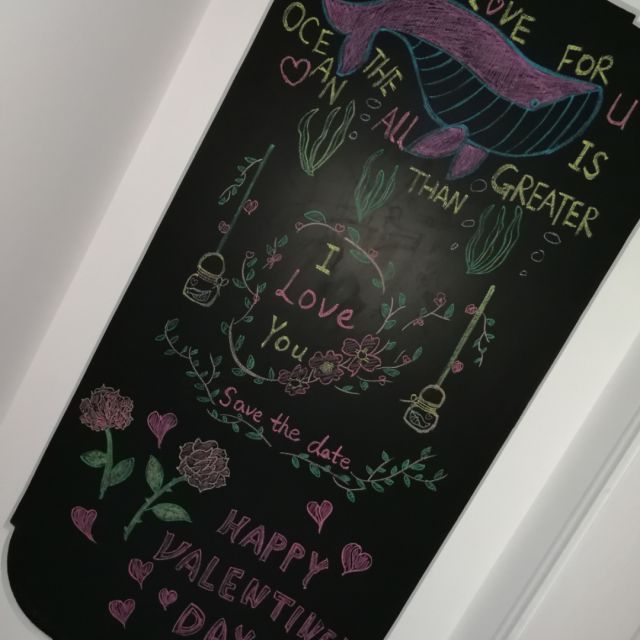 LOVE FOR U
IS
GREATER
THAN
ALL
THE
OCEAN
I
Love
You
Save the date
HAPPY
VALENTINE
DAY